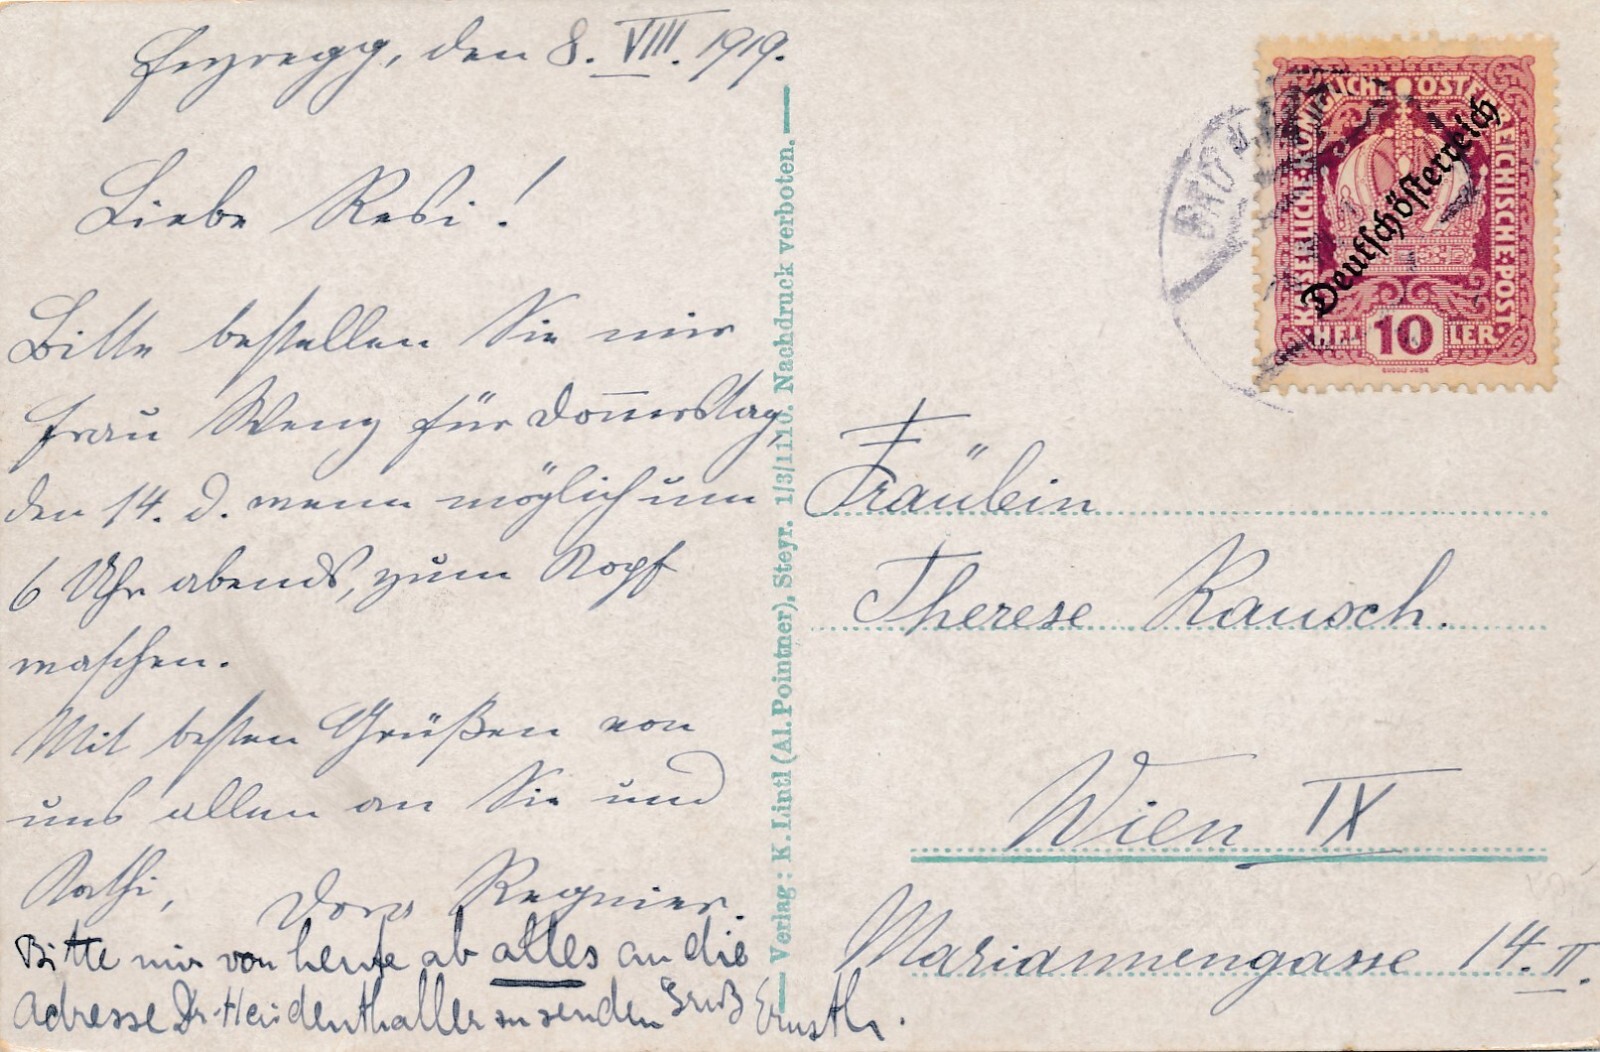 Feyregg, den 8. VIII. 1919.
Liebe Resi!
Bitte bestellen Sie mir
Frau Weny für Donnerstag,
den 14. d. wenn möglich um
6 Uhr abends, zum Kopf
waschen.
Mit besten Grüßen von
uns allen an Sie und
Kathi, Dora Regnier.
Bitte mir von heute ab alles an die
Adresse Dr. Heidenthaller zu senden Gruß
Verlag: K. Lintl (Al. Pointner), Steyr. 1/3/1110. Nachdruck verboten.
KAISERLICHE KÖNIGLICHE ÖSTERREICHISCHE POST
Deutschösterreich
HELLER 10
Fräulein
Therese Rausch.
Wien IX
Mariannengasse 14. II.